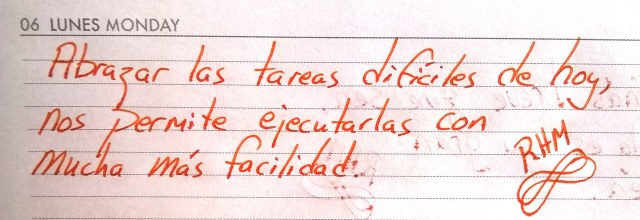 06 LUNES MONDAY
Abrazar las tareas difíciles de hoy,
nos permite ejecutarlas con
mucha más facilidad.
RHM